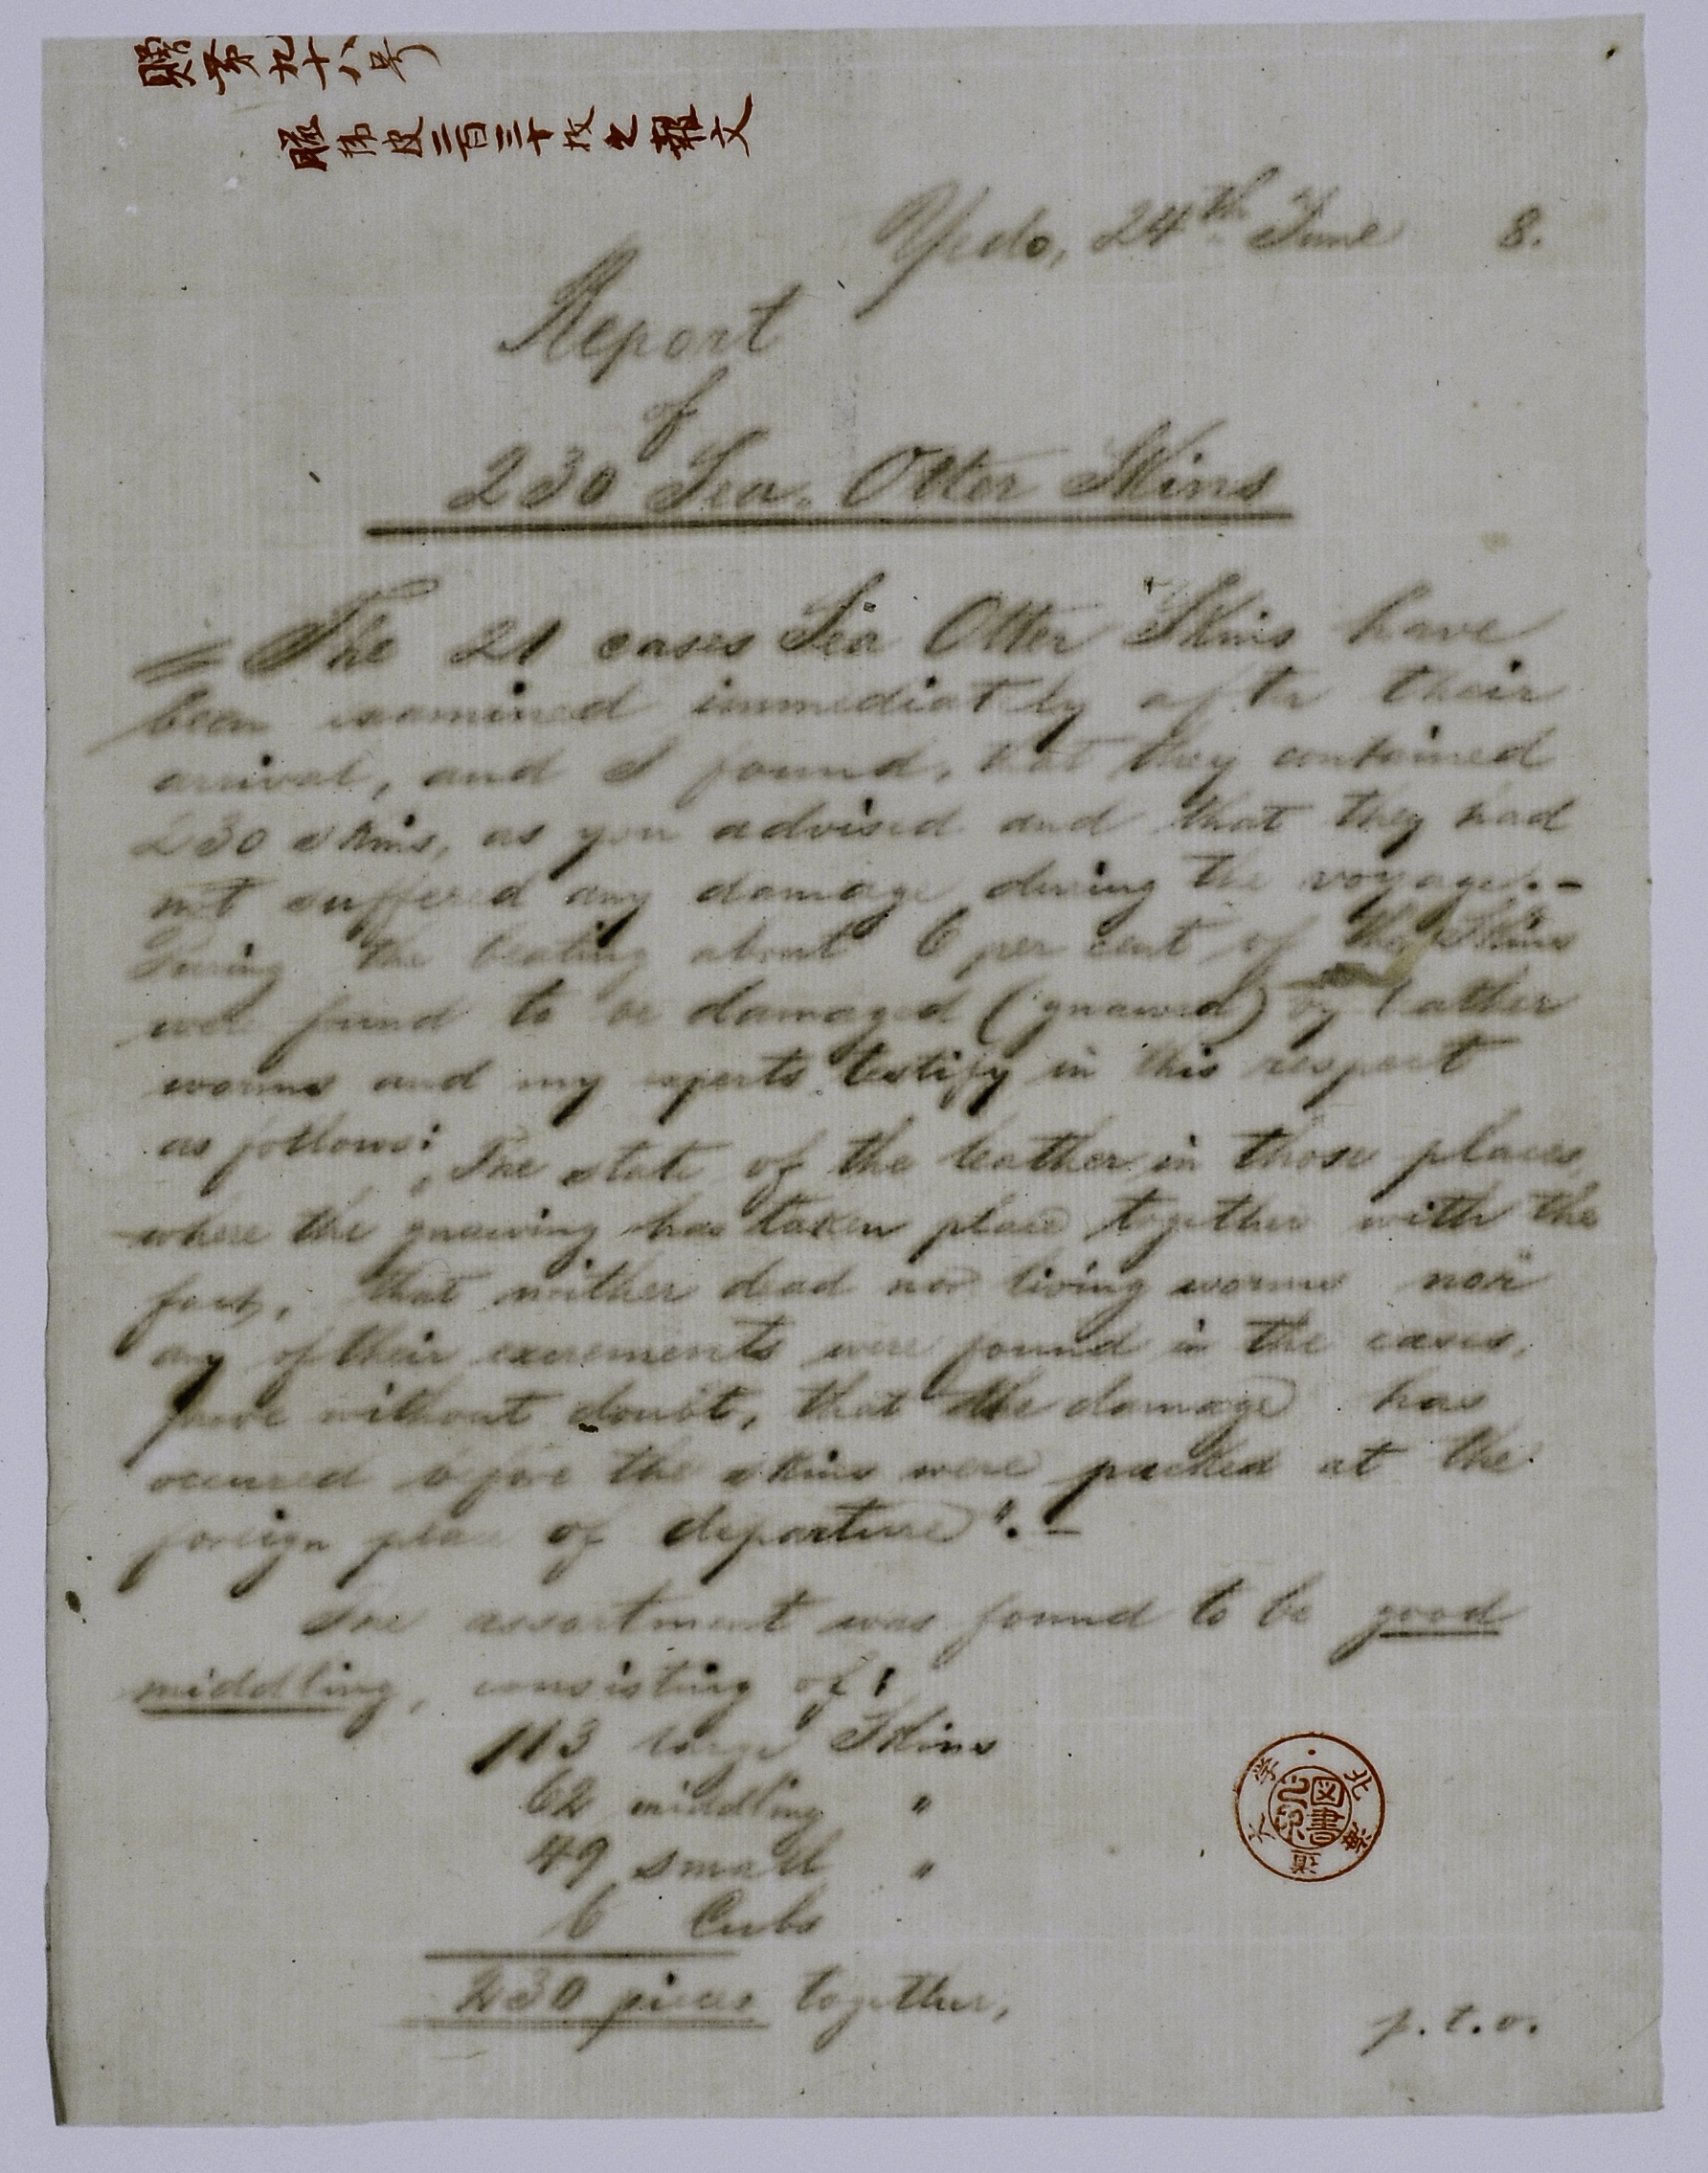 第九十八号
皮二百三十枚之報文
Yedo, 24th June 8.
Report
of
230 Sea Otter Skins
The 21 cases Sea Otter Skins have
been examined immediately after their
arrival, and I found, that they contained
230 skins, as you advised and that they had
not suffered any damage during the voyage. –
During the beating about 6 per cent of the Skins
were found to be damaged (gnawed) by leather
worms and my experts testify in this respect
as follows:
„The state of the leather in those places,
where the gnawing has taken place together with the
fact, that neither dead nor living worms nor
any of their excrements were found in the cases,
prove without doubt, that the damage has
occured before the skins were packed at the
foreign place of departure". –
The assortment was found to be good
middling, consisting of:
113 large Skins
62 middling "
49 small "
6 Cubs
230 pieces together,
p.t.o.
北海道大学
図書之印